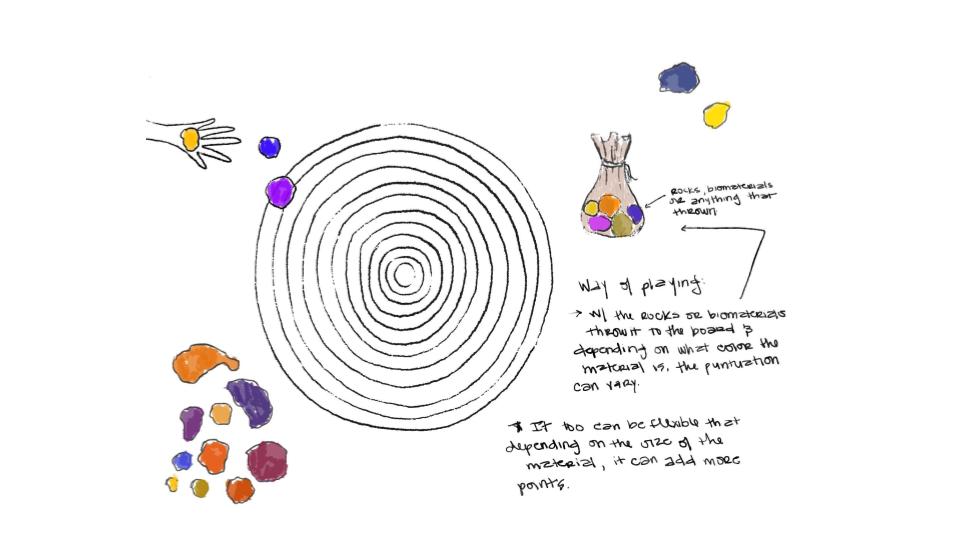 Rocks, biomaterials
or anything that
thrown
Way of playing:
→ W/ the rocks or biomaterials
throw it to the board &
depending on what color the
material is, the puntuation
can vary.
* It too can be flexible that
depending on the size of the
material, it can add more
points.